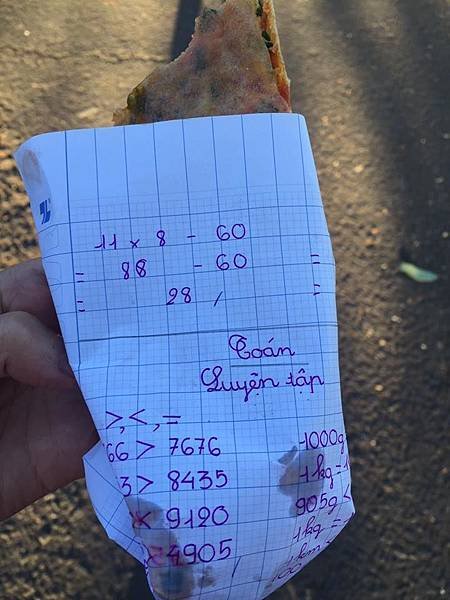 11 x 8 - 60
= 88 - 60 =
= 28 =
Toán
Luyện tập
>, <, =
66 > 7676
3 > 8435
< 9120
< 4905
1000g
1kg
905g <
1kg =
1km